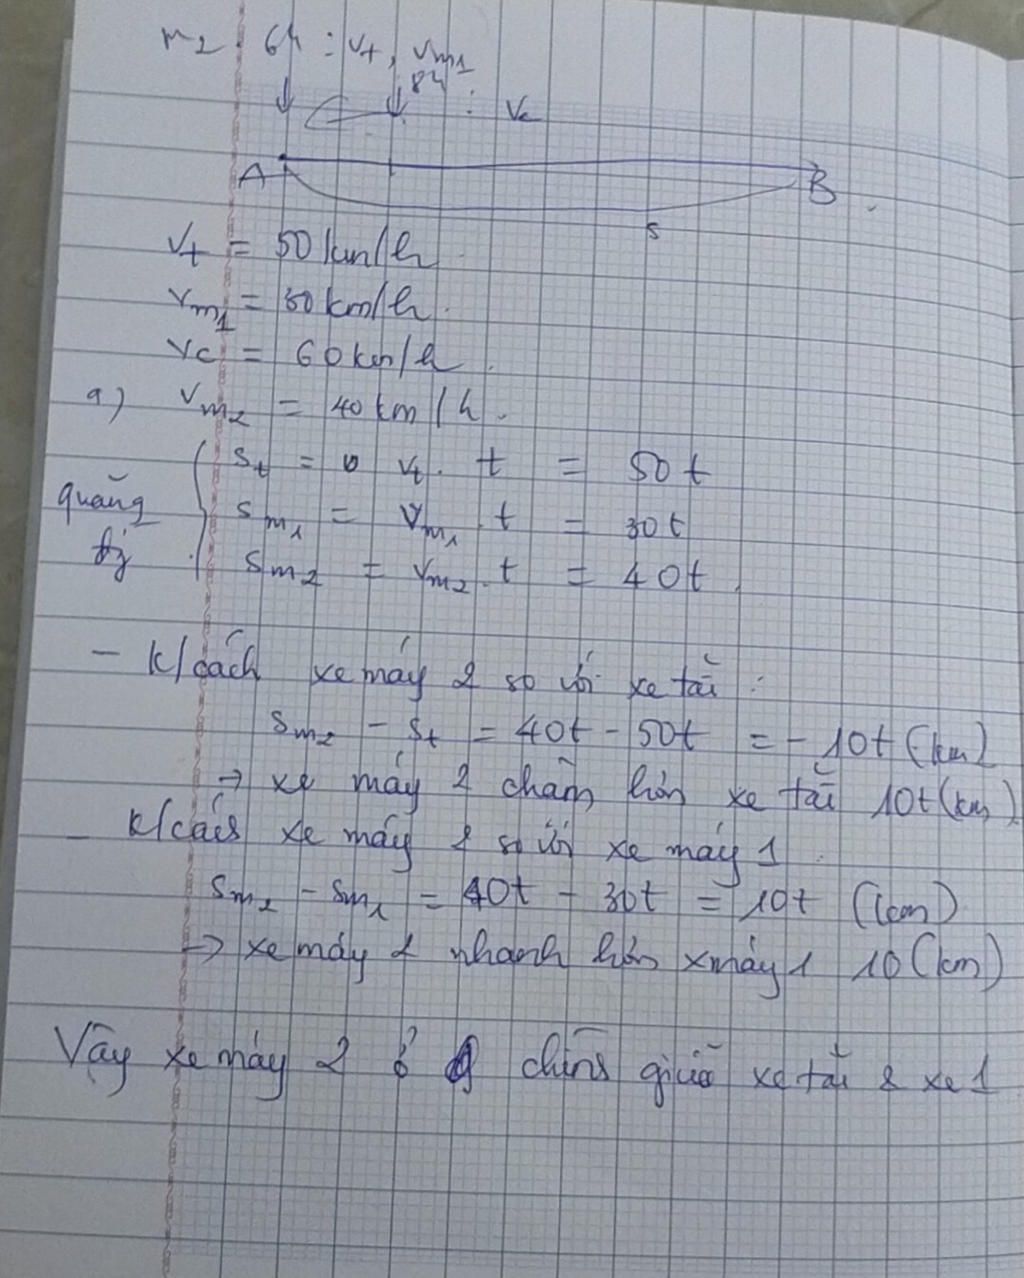 m2 6h : vt, vm1
8h : vc
A B
s
vt = 50 km/h
vm1 = 30 km/h.
vc = 60 km/h.
a) vm2 = 40 km/h.
st = vt. t = 50t
quãng sm1 = vm1. t = 30t
đg sm2 = vm2. t = 40t.
- k/cách xe máy 2 so với xe tải :
sm2 - st = 40t - 50t = - 10t (km)
→ xe máy 2 chậm hơn xe tải 10t (km)
- k/cách xe máy 2 so với xe máy 1
sm2 - sm1 = 40t - 30t = 10t (km)
→ xe máy 2 nhanh hơn xmáy 1 10 (km)
Vậy xe máy 2 ở chính giữa xe tải & xe 1